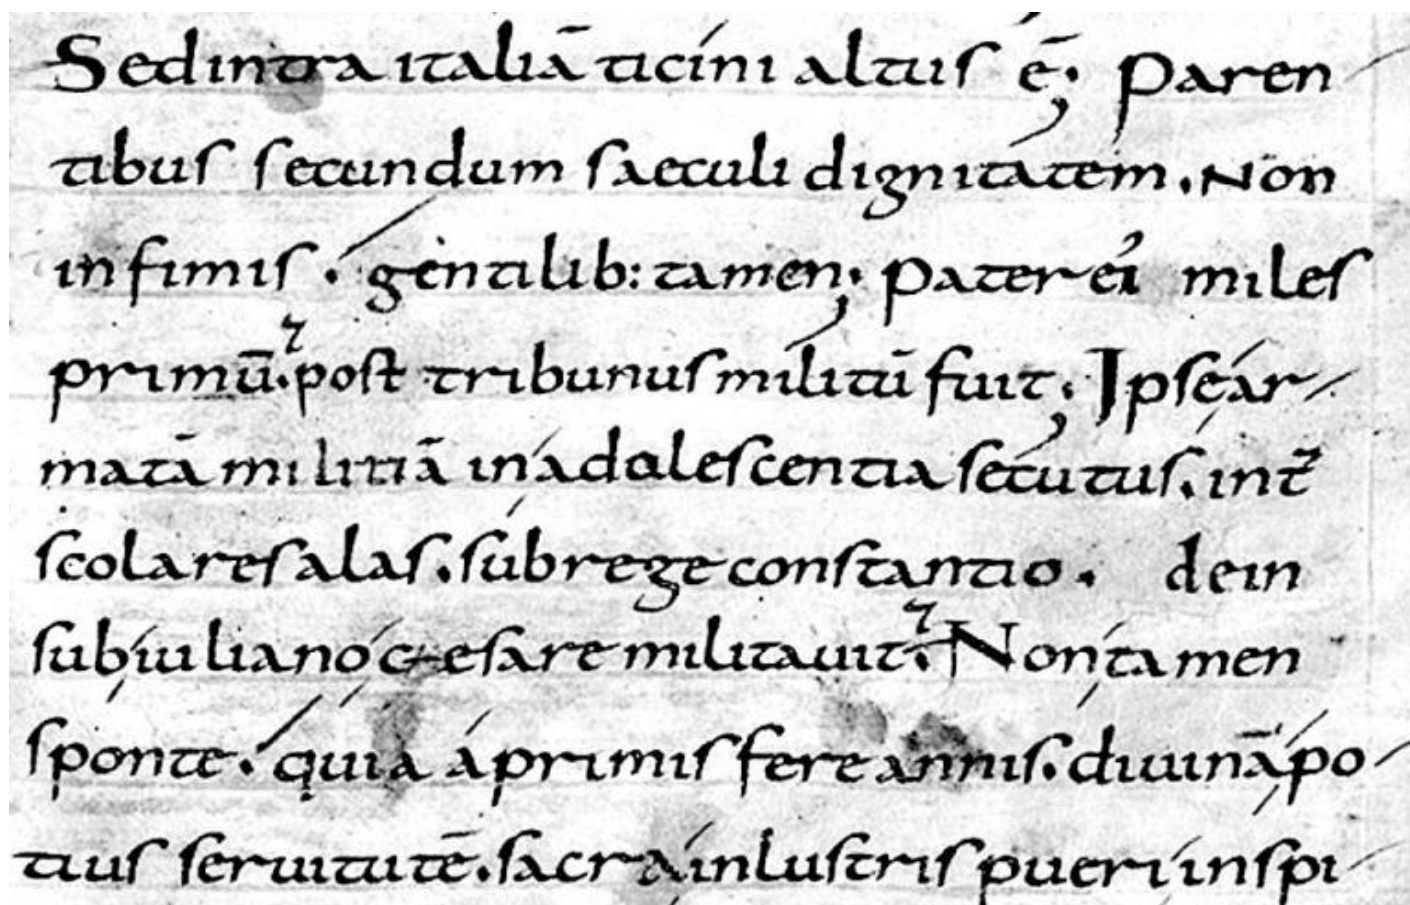 Sed intra italiā ticini altus ē; Paren
tibus secundum saeculi dignitatem. Non
infimis. gentilib: tamen; Pater ei miles
primū. post tribunus militū fuit; Ipse ar
matā militiā in adolescentia secutus. int̄
scolares alas. sub rege constantio. dein
sub iuliano cęsare militauit. Non tamen
sponte. quia a primis fere annis. diuinā po
tius seruitutē. sacra inlustris pueri inspi